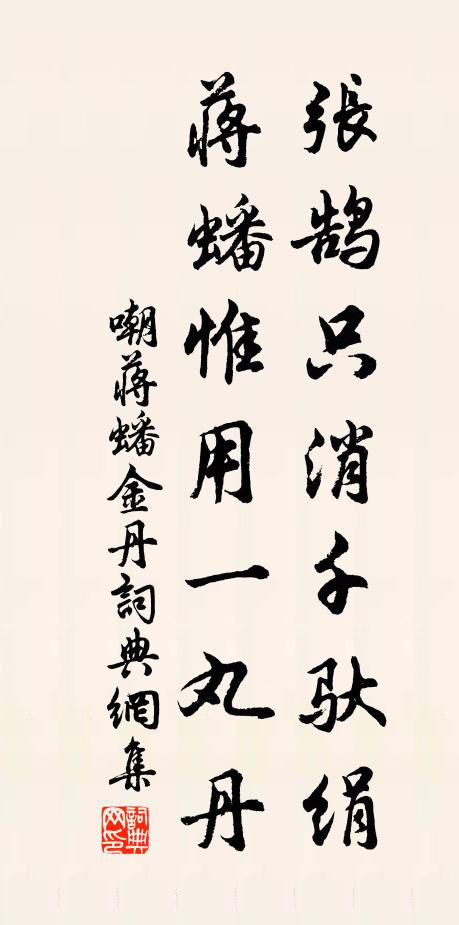 張鵠只消千馱絹
蔣蟠惟用一丸丹
嘲蔣蟠金丹詞典網集
詞典網印